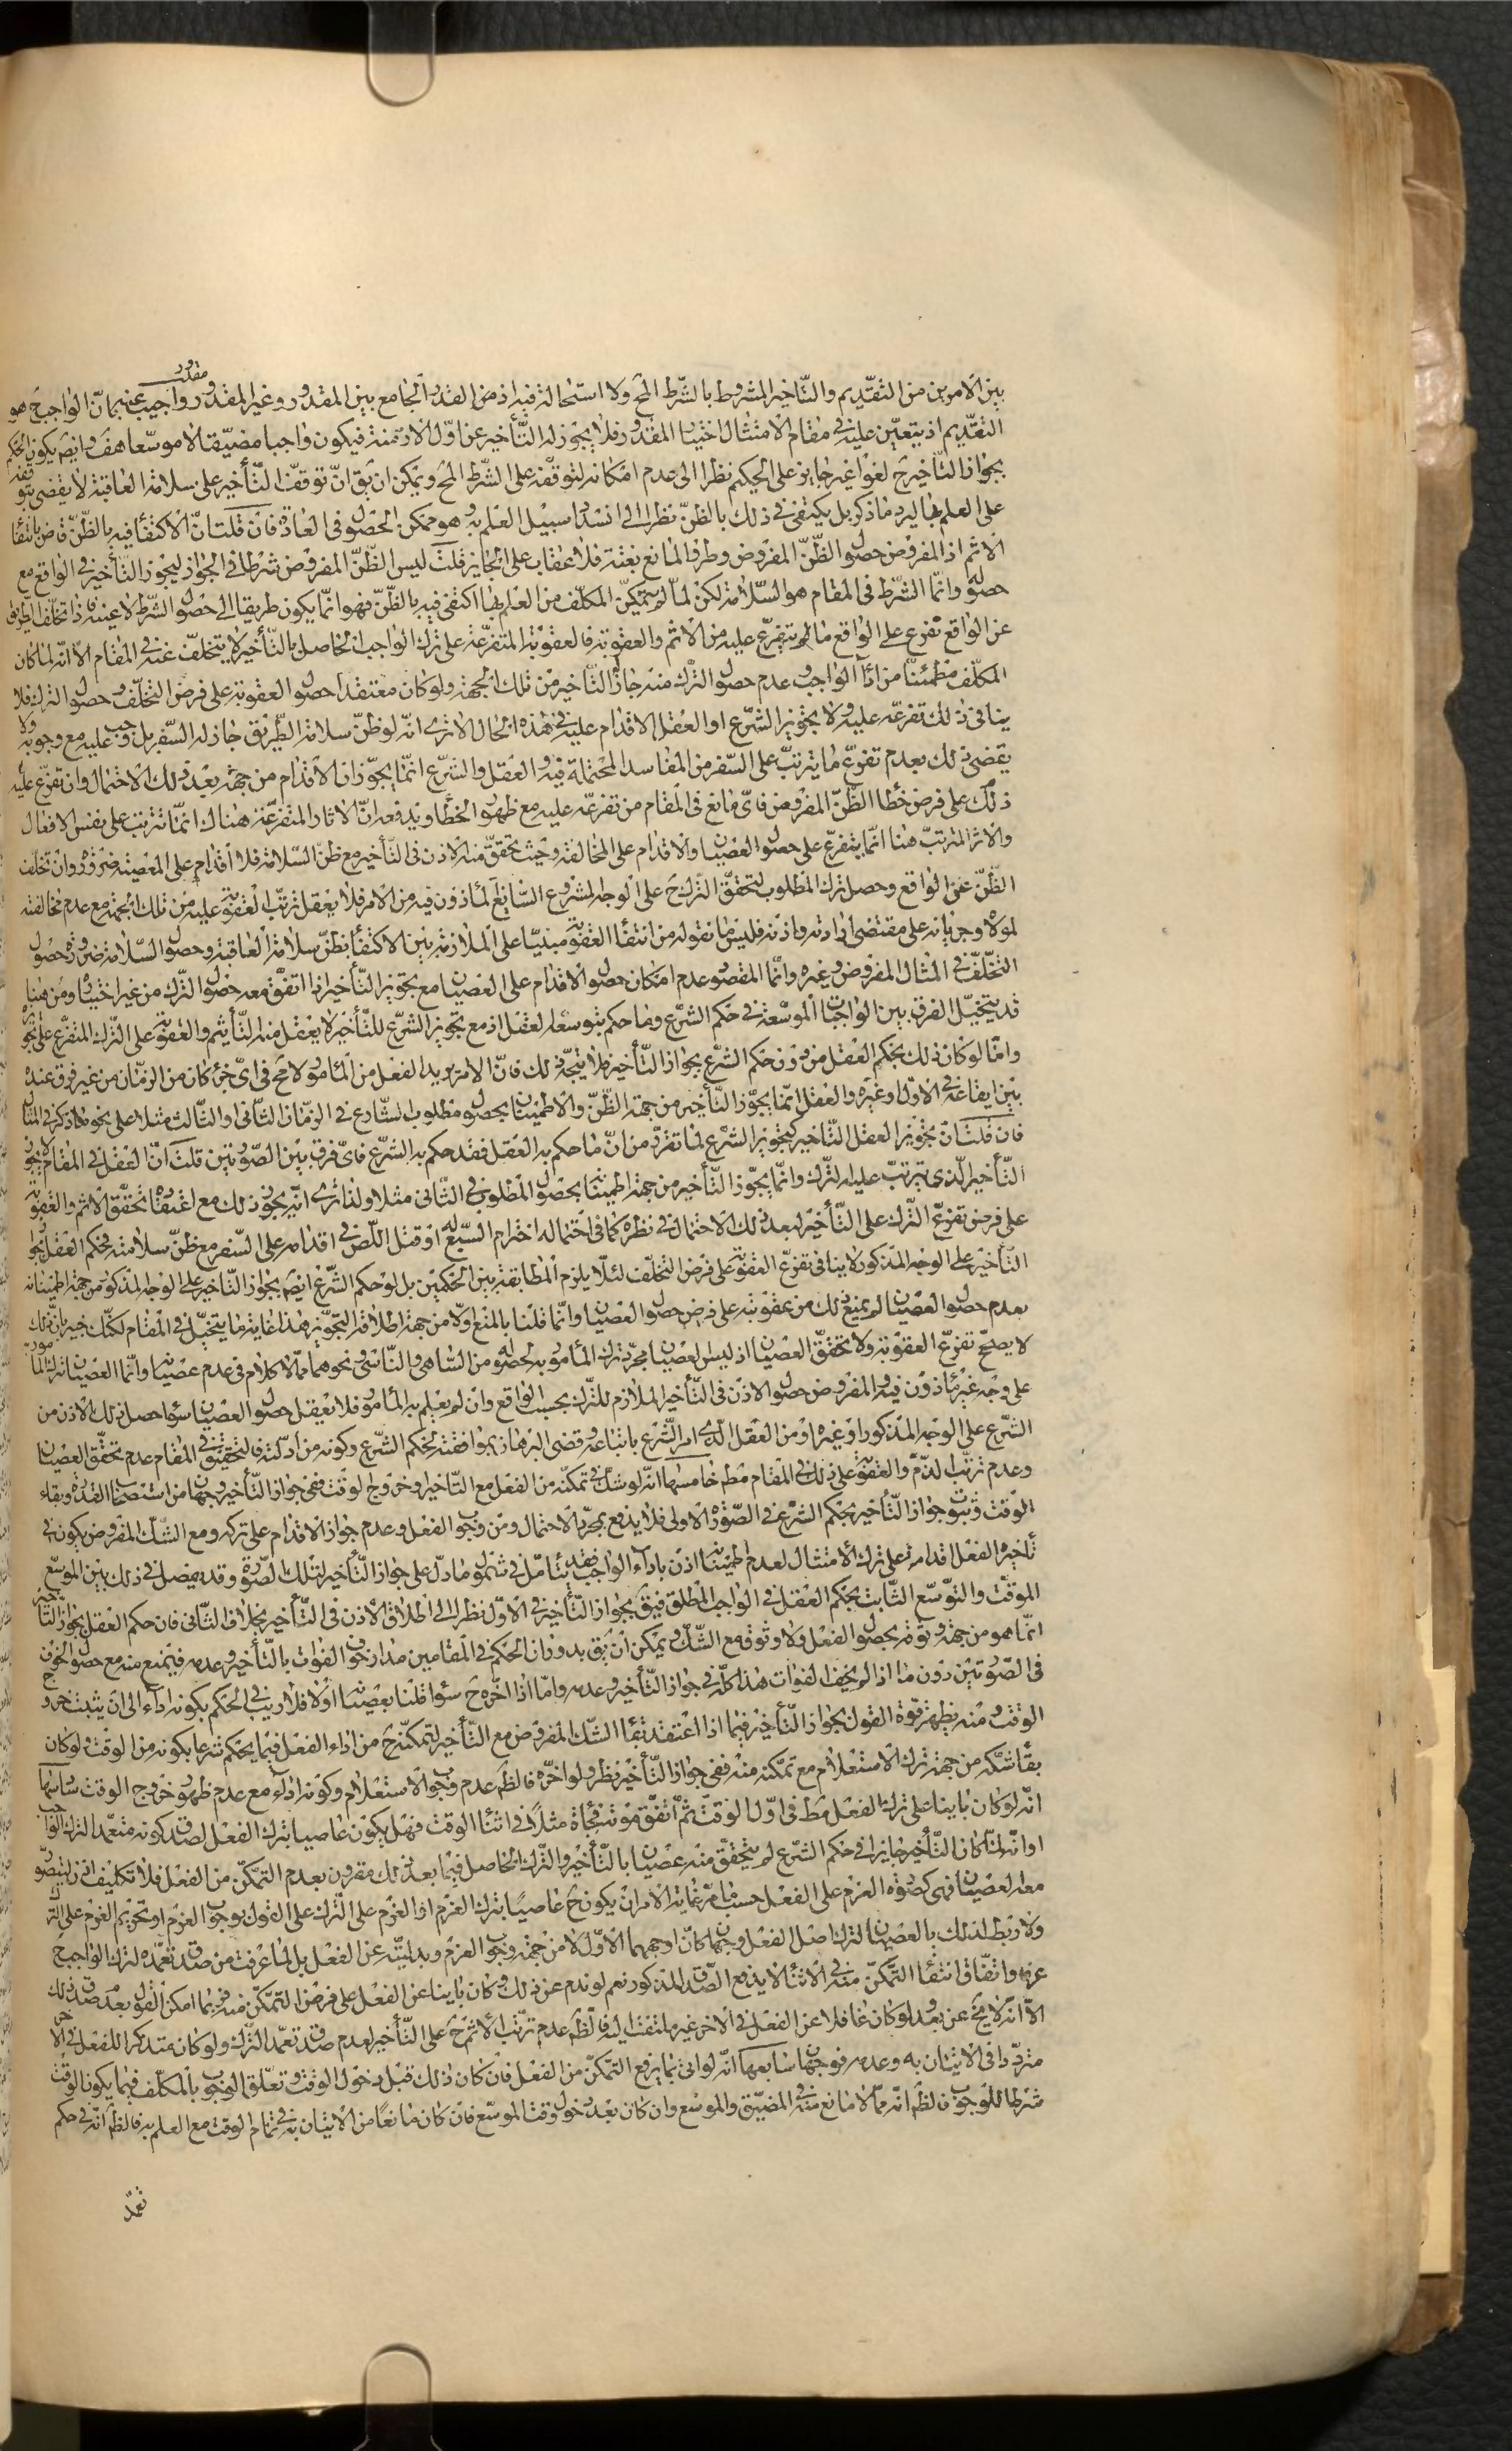 بين الامرين من التقديم والتاخير المشروط بالشرط المخ ولا استحالة فيه اذ ضم القدر الجامع بين المقدور وغير المقدور مقدور واجيب عنه بان الواجب ح هو
التقديم اذ يتعين عليه في مقام الامتثال اختيار المقدور فلا يجوز له التأخير عن اول الازمنة فيكون واجبا مضيقا لا موسعا هف وايضا يكون الحكم
بجواز التأخير ح لغوا غير جايز على الحكيم نظرا الى عدم امكانه لتوقفه على الشرط المخ ويمكن ان يق ان توقف التأخير على سلامة العاقبة لا يقضى بتوقفه
على العلم بها ليرد ما ذكر بل يكتفى في ذلك بالظن نظرا الى انسداد سبيل العلم به وهو ممكن الحصول في العادة فان قلت ان الاكتفاء فيه بالظن قاض بانتفاء
الاثم اذ المفروض حصول الظن المفروض وطرو المانع بغتة فلا عقاب على الجايز قلت ليس الظن المفروض شرطا في الجواز ليجوز التأخير في الواقع مع
حصوله وانما الشرط في المقام هو السلامة لكن لما لم يتمكن المكلف من العلم بها اكتفى فيه بالظن فهو انما يكون طريقا الى حصول الشرط لا عينه فاذا تخلف الطريق
عن الواقع تفرع على الواقع ما يتفرع عليه من الاثم والعقوبة فالعقوبة المتفرعة على ترك الواجب الحاصل بالتأخير لا يتخلف عنه في المقام الا انه لما كان
المكلف مطمئنا من اداء الواجب وعدم حصول الترك منه جاز التأخير من تلك الجهة ولو كان معتقدا حصول العقوبة على فرض التخلف وحصول الترك فلا
ينافى ذلك تفرعه عليه ولا يجوز الشرع او العقل الاقدام عليه في هذه الحال الا ترى انه لو ظن سلامة الطريق جاز له السفر بل وجب عليه مع وجوبه ولا
يقضى ذلك بعدم تفرع ما يترتب على السفر من المفاسد المحتملة فيه والعقل والشرع انما يجوزان الاقدام من جهة بعد ذلك الاحتمال وان تفرع عليه
ذلك على فرض خطاء الظن المفروض فاى مانع في المقام من تفرعه عليه مع ظهور الخطاء ويدفعه ان الاثار المتفرعة هناك انما تترتب على نفس الافعال
والاثر المترتب هنا انما يتفرع على حصول العصيان والاقدام على المخالفة وحيث تحقق منه الاذن في التأخير مع ظن السلامة فلا اقدام على المعصية ضرورة وان تخلف
الظن عن الواقع وحصل ترك المطلوب لتحقق الترك ح على الوجه المشروع السايغ المأذون فيه من الامر فلا يعقل ترتب العقوبة عليه من تلك الجهة مع عدم مخالفته
لمولاه وجريانه على مقتضى ارادته واذنه فليس ما نقوله من انتفاء العقوبة مبنيا على الملازمة بين الاكتفاء بظن سلامة العاقبة وحصول السلامة ضرورة حصول
التخلف في المثال المفروض وغيره وانما المقصود عدم امكان حصول الاقدام على العصيان مع تجويز التأخير اذا اتفق معه حصول الترك من غير اختياره ومن هنا
قد يتخيل الفرق بين الواجبات الموسعة في حكم الشرع وما حكم بتوسعه العقل اذ مع تجويز الشرع للتأخير لا يعقل منه التأثيم والعقوبة على الترك المتفرع على تجويزه
واما لو كان ذلك بحكم العقل من دون حكم الشرع بجواز التأخير فلا يتجه ذلك فان الامر يريد الفعل من المأمور لا مح في اى جزء كان من الزمان من غير فرق عنده
بين ايقاعه في الاول وغيره والعقل انما يجوز التأخير من جهة الظن والاطمينان بحصول مطلوب الشارع في الزمان الثاني والثالث مثلا على نحو ما ذكر في المثال
فان قلت ان تجويز العقل التاخير كتجويز الشرع لما تقرر من ان ما حكم به العقل فقد حكم به الشرع فاى فرق بين الصورتين قلت ان العقل في المقام لا يجوز
التأخير الذى يترتب عليه الترك وانما يجوز التأخير من جهة اطمينانه بحصول المطلوب في الثاني مثلا ولذا ترى انه يجوز ذلك مع اعتقاد تحقق الاثم والعقوبة
على فرض تفرع الترك على التأخير لبعد ذلك الاحتمال في نظره كما في احتماله اخترام السبع له او قتل اللص في اقدامه على السفر مع ظن سلامته فحكم العقل بجواز
التأخير على الوجه المذكور لا ينافى تفرع العقوبة على فرض التخلف لئلا يلزم المطابقة بين الحكمين بل لو حكم الشرع ايضا بجواز التأخير على الوجه المذكور من جهة اطمينانه
بعدم حصول العصيان لم يمنع ذلك من عقوبته على فرض حصول العصيان وانما قلنا بالمنع اولا من جهة اطلاقه التجويز هذا غاية ما يتخيل في المقام لكنك خبير بان ذلك
لا يصحح تفرع العقوبة ولا تحقق العصيان اذ ليس العصيان مجرد ترك المأمور به لحصوله من الساهى والناسى ونحوهما مما لا كلام في عدم عصيانه وانما العصيان ترك المأمور به
على وجه غير مأذون فيه والمفروض حصول الاذن في التأخير الملازم للترك بحسب الواقع وان لم يعلم به المأمور فلا يعقل حصول العصيان سواء حصل ذلك الاذن من
الشرع على الوجه المذكور او غيره او من العقل الذى امر الشرع باتباعه وقضى البرهان بموافقته لحكم الشرع وكونه من ادلته فالتحقيق في المقام عدم تحقق العصيان
وعدم ترتب الذم والعقوبة على ذلك في المقام مط خامسها انه لو شك في تمكنه من الفعل مع التأخير او خروج الوقت ففى جواز التأخير وجهان من استصحاب القدرة وبقاء
الوقت وثبوت جواز التأخير بحكم الشرع في الصورة الاولى فلا يدفع بمجرد الاحتمال ومن وجوب الفعل وعدم جواز الاقدام على تركه ومع الشك المفروض يكون في
تأخيره الفعل اقدامه على ترك الامتثال لعدم اطمينانه اذن باداء الواجب فقد يتأمل في شمول ما دل على جواز التأخير لتلك الصورة وقد يفصل في ذلك بين الموسع
الموقت والتوسع الثابت بحكم العقل في الواجب المطلق فيق بجواز التأخير في الاول نظرا الى اطلاق الاذن في التأخير بخلاف الثاني فان حكم العقل بجواز التأخير
انما هو من جهة وثوقه بحصول الفعل ولا وثوق مع الشك ويمكن ان يق بدوران الحكم في المقامين مدار خوف الفوات بالتأخير وعدمه فيمنع منه مع حصول الخوف
في الصورتين دون ما اذا لم يخف الفوات هذا كله في جواز التأخير وعدمه واما اذا اخره ح سواء قلنا بعصيانه او لا فلا ريب في الحكم بكونه اداء الى ان يثبت خروج
الوقت ومنه يظهر قوة القول بجواز التأخير فيما اذا اعتقد بقاء الشك المفروض مع التأخير لتمكنه ح من اداء الفعل فيما يحكم شرعا بكونه من الوقت ولو كان
بقاء شكه من جهة ترك الاستعلام مع تمكنه منه ففى جواز التأخير نظر ولو اخره فالظ عدم وجوب الاستعلام وكونه اداء مع عدم ظهور خروج الوقت سادسها
انه لو كان بانيا على ترك الفعل مط في اول الوقت ثم اتفق موته فجأة مثلا في اثناء الوقت فهل يكون عاصيا بترك الفعل لصدق كونه متعمدا لترك الواجب
او انه لما كان التأخير جايزا في حكم الشرع لم يتحقق منه عصيان بالتأخير والترك الحاصل فيما بعد ذلك مقرون بعدم التمكن من الفعل فلا تكليف اذن ليتصور
معه العصيان فهى كصورة العزم على الفعل حسبما مر غاية الامر ان يكون ح عاصيا بترك العزم او العزم على الترك على القول بوجوب العزم او تحريم العزم على الترك
ولا ربط لذلك بالعصيان لترك اصل الفعل وجهان كان اوجههما الاول لا من جهة وجوب العزم وبدليته عن الفعل بل لما عرفت من صدق تعمده لترك الواجب ح
عرفا واتفاق انتفاء التمكن منه في الاثناء لا يدفع الصدق المذكور نعم لو ندم عن ذلك وكان بانيا عن الفعل على فرض التمكن منه فربما امكن القول بعد صدق ذلك
الا انه لا يخ عن بعد ولو كان غافلا عن الفعل في الاخر غير ملتفت اليه فالظ عدم ترتب الاثم ح على التأخير لعدم صدق تعمد الترك ولو كان متذكرا للفعل في الاخر
مترددا في الاتيان به وعدمه فوجهان سابعها انه لو اتى بما يرفع التمكن من الفعل فان كان ذلك قبل دخول الوقت وتعلق الوجوب بالمكلف فيما يكون الوقت
شرطا للوجوب فالظ انه مما لا مانع منه في المضيق والموسع وان كان بعد دخول وقت الموسع فان كان مانعا من الاتيان به في تمام الوقت مع العلم به فالظ انه في حكم
تعمد